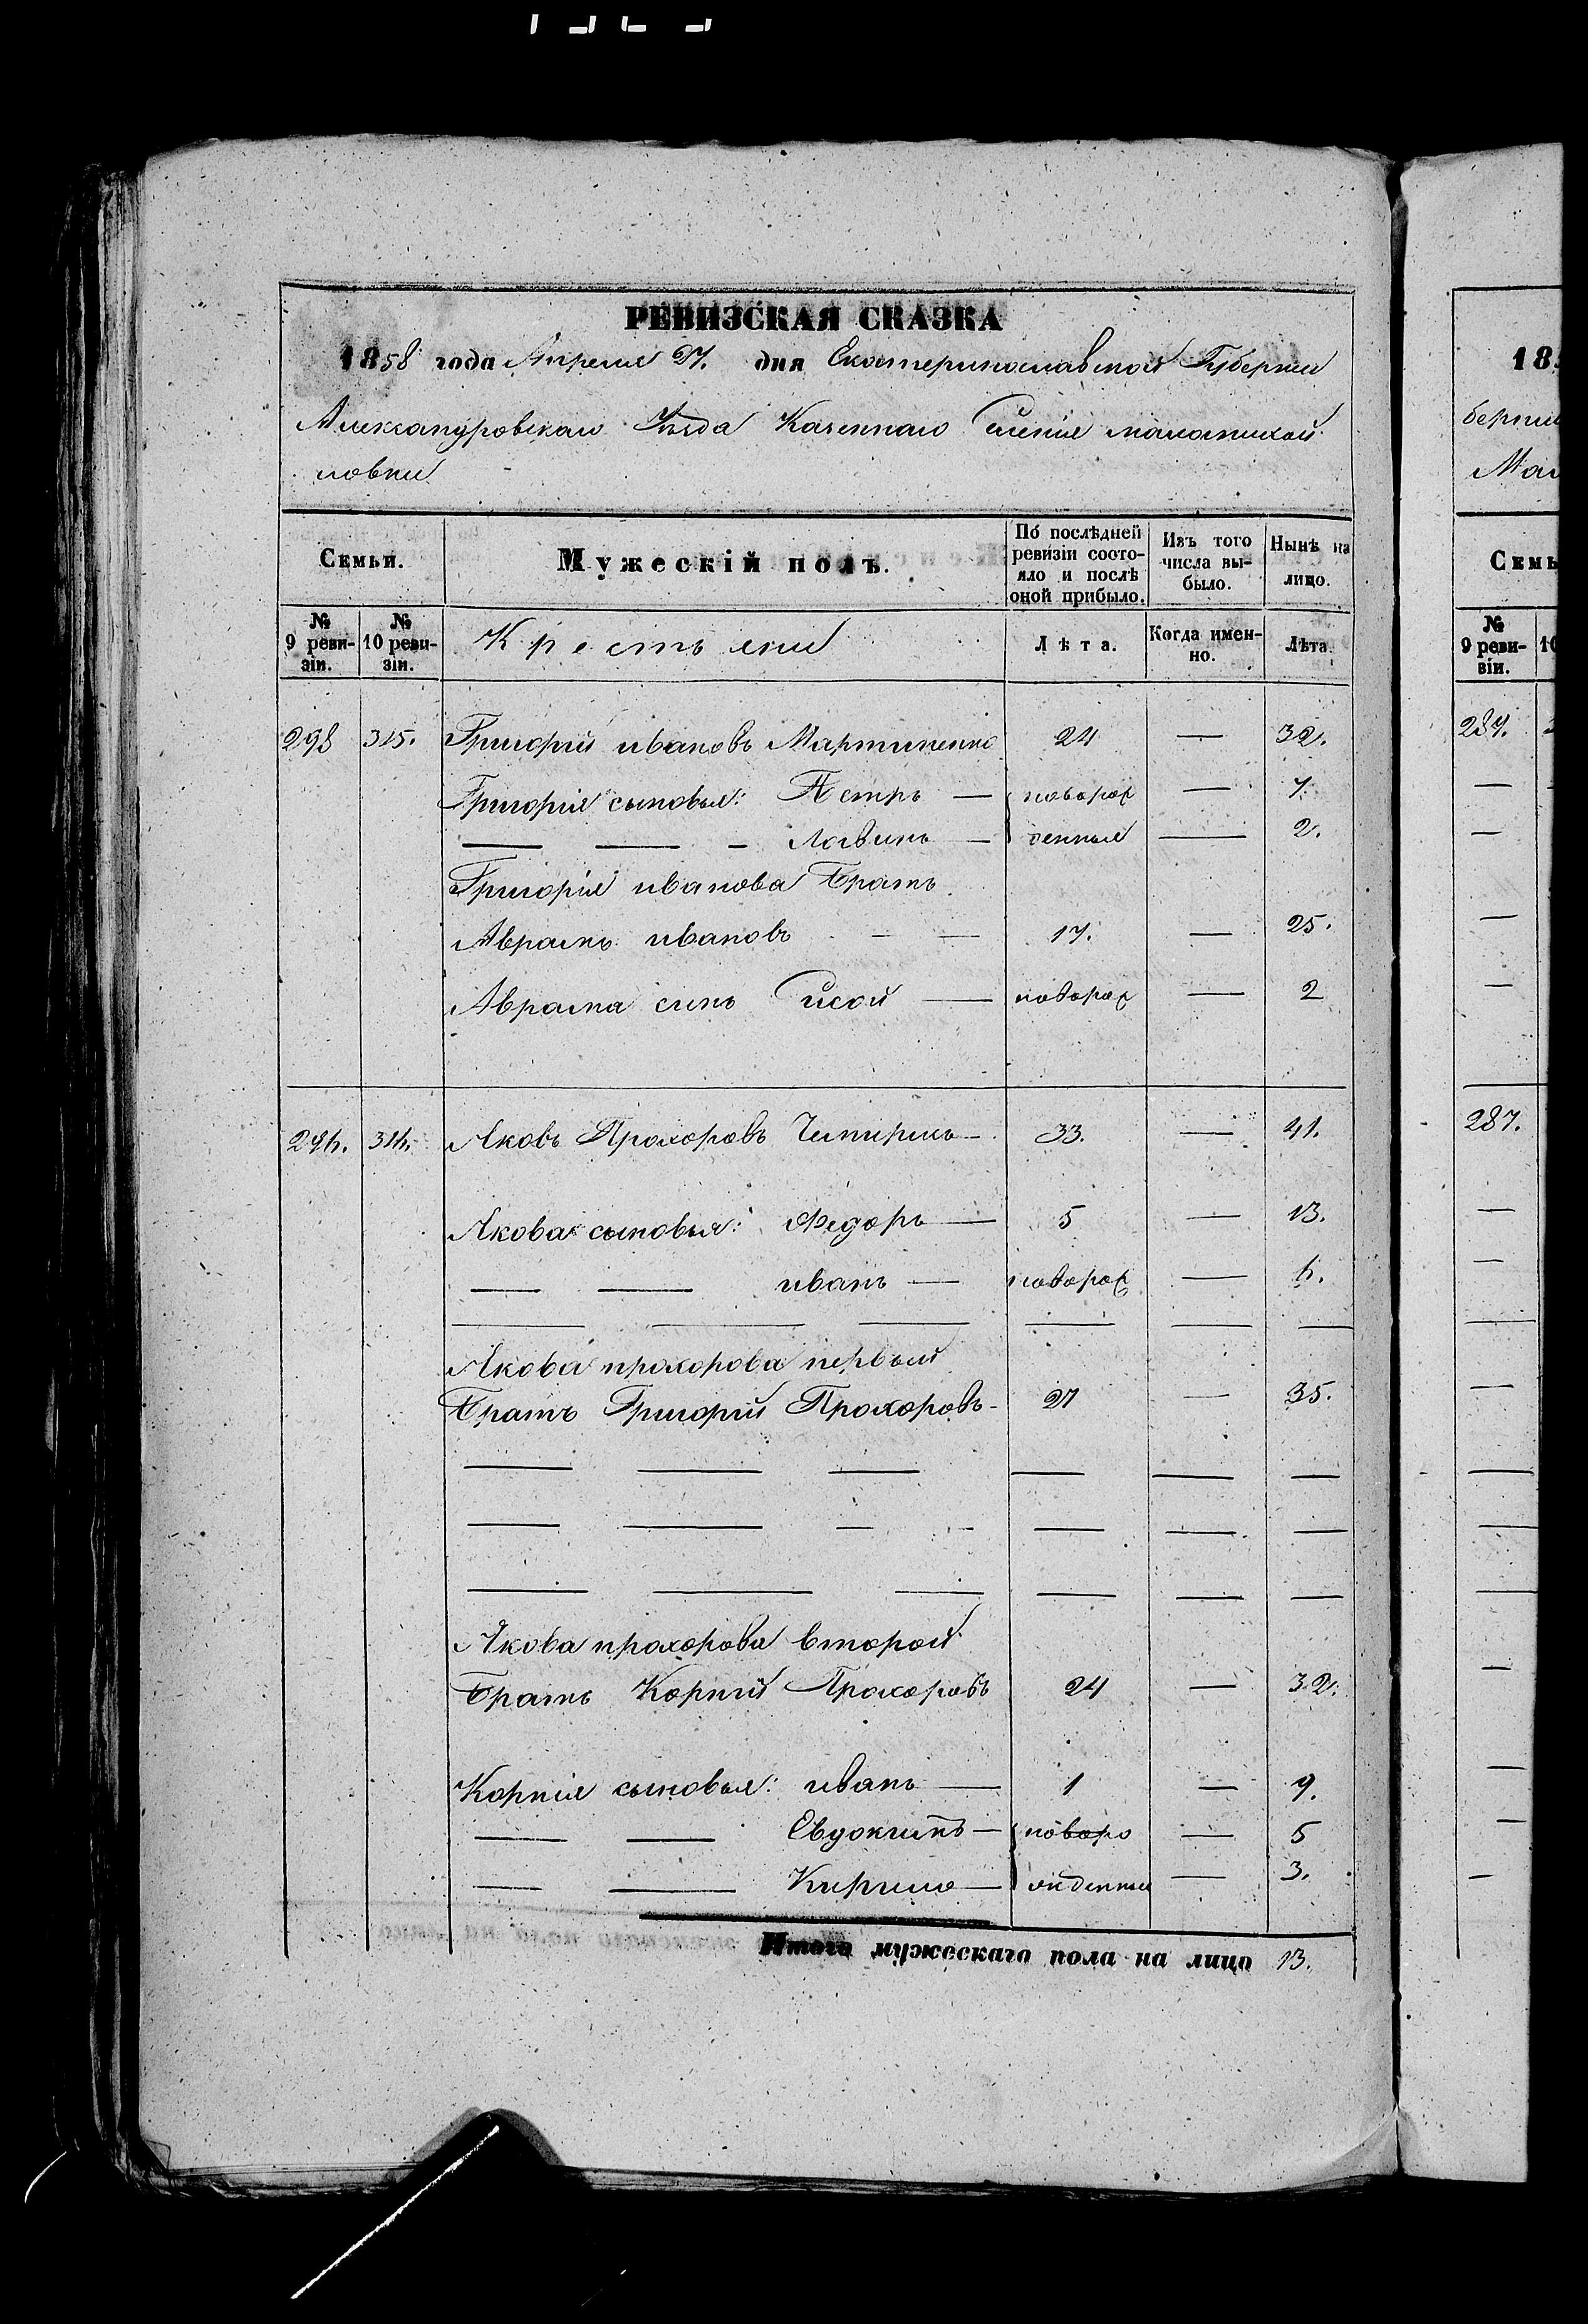 РЕВИЗСКАЯ СКАЗКА
1858 года Апреля 27. дня Екатеринославской Губернии
Александровскаго Уезда Казеннаго Селенія маломихай
ловки
Семьи.
Мужескій полъ.
По послѣдней ревизіи состояло и послѣ оной прибыло.
Изъ того числа выбыло.
Нынѣ на лицо.
№ 9 ревизіи.
№ 10 ревизіи.
Крестьяне
Лѣта.
Когда именно.
Лѣта.
298 315. Григорій ивановъ Мартиненко 24 — 32.
Григорія сыновья: Петръ — новорож — 7.
— — — Логвинъ — денныя — 2.
Григорія иванова Братъ
Аврамъ ивановъ — — 17. — 25.
Аврама синъ Сисой — новорож — 2
314. Яковъ Прохоровъ — 33. — 41.
Якова сыновья: Федоръ — 5 — 13.
— — иванъ — новорож — 6.
— — — — — —
Якова прохорова первый
Братъ Григорій Прохоровъ - 27 — 35.
— — — — — —
— — — — — — —
— — — — — —
Якова прохорова второй
Братъ Корній Прохоровъ 24 — 32.
Корнія сыновья: иванъ — 1 — 9.
— — Евдокимъ — новоро — 5
— — Кирило — жденныи — 3.
Итого мужескаго пола на лицо 13.
18
берни
Ма
Семь
№ 9 ревизіи.
10
287.
—
—
—
—
287.